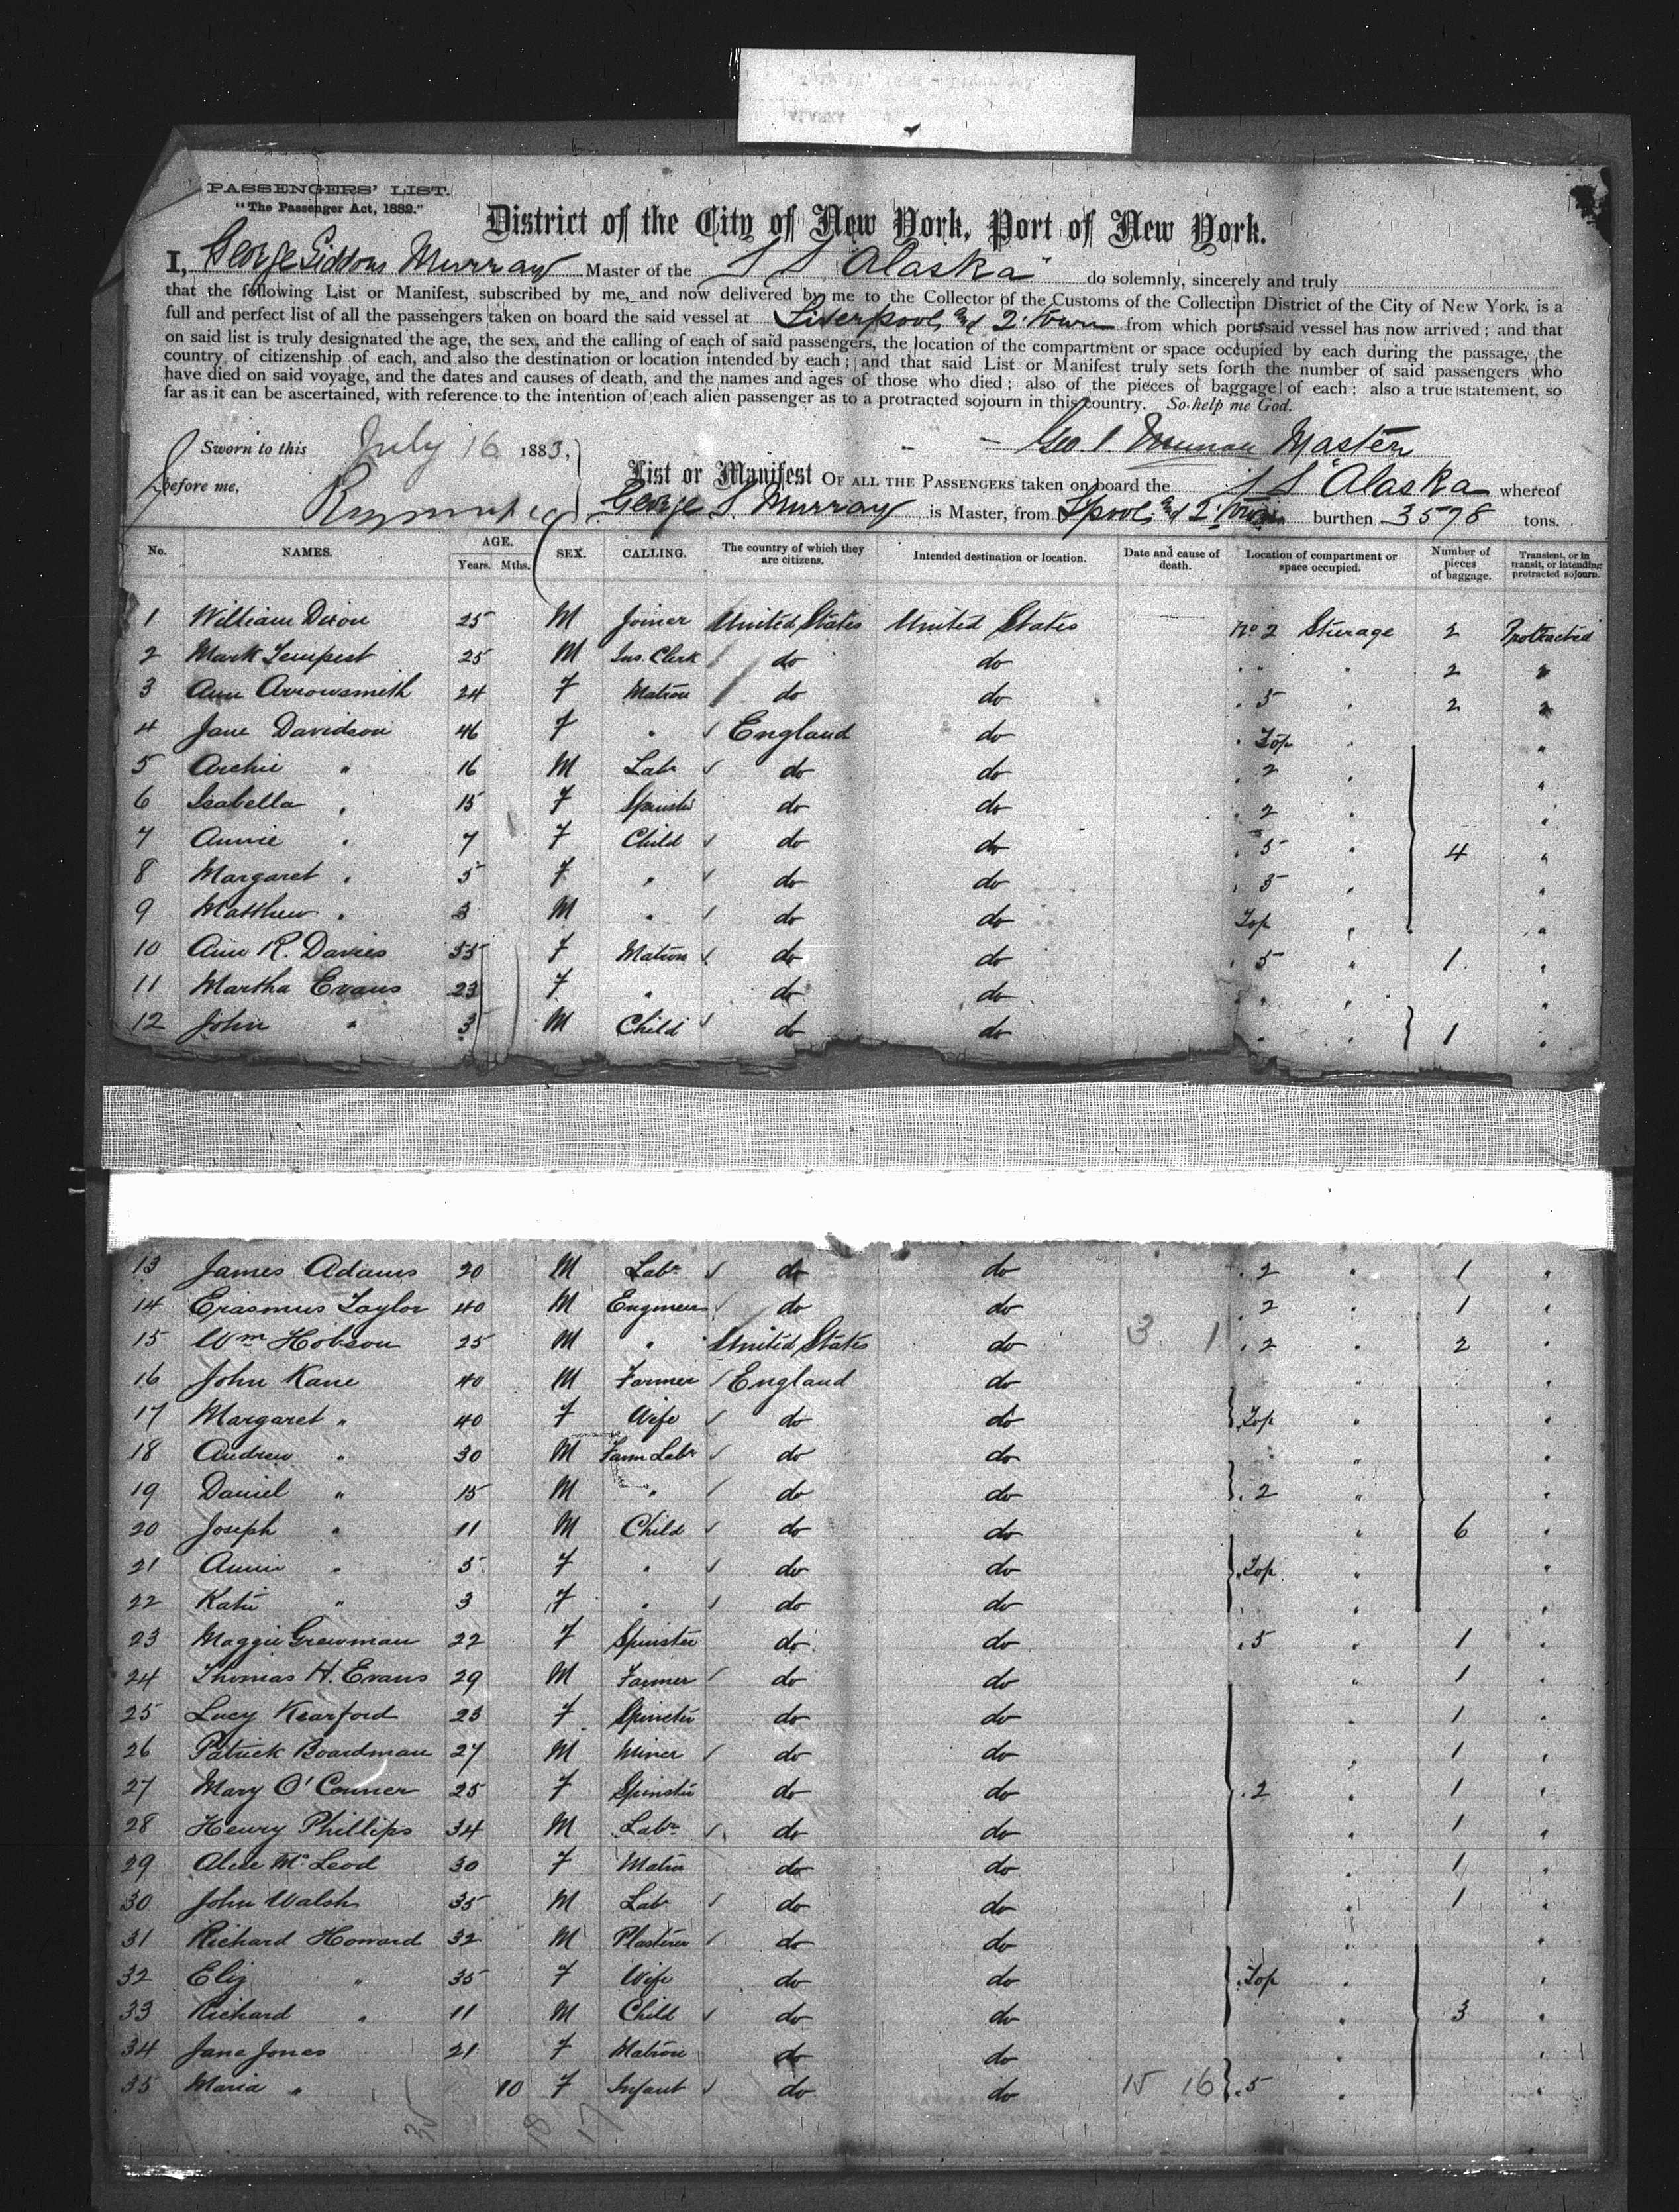 PASSENGERS' LIST.
"The Passenger Act, 1882."
District of the City of New York, Port of New York.
I, George Siddons Murray Master of the S S "Alaska" do solemnly, sincerely and truly
that the following List or Manifest, subscribed by me, and now delivered by me to the Collector of the Customs of the Collection District of the City of New York, is a
full and perfect list of all the passengers taken on board the said vessel at Liverpool and 2. Town from which ports said vessel has now arrived; and that
on said list is truly designated the age, the sex, and the calling of each of said passengers, the location of the compartment or space occupied by each during the passage, the
country of citizenship of each, and also the destination or location intended by each; and that said List or Manifest truly sets forth the number of said passengers who
have died on said voyage, and the dates and causes of death, and the names and ages of those who died; also of the pieces of baggage of each; also a true statement, so
far as it can be ascertained, with reference to the intention of each alien passenger as to a protracted sojourn in this country. So help me God.
Sworn to this July 16 1883, Geo. S. Murray Master
before me,
List or Manifest OF ALL THE PASSENGERS taken on board the S S "Alaska whereof
George S. Murray is Master, from Lpool and 2. Town burthen 3578 tons.
No. NAMES. AGE. Years. Mths. SEX. CALLING. The country of which they are citizens. Intended destination or location. Date and cause of death. Location of compartment or space occupied. Number of pieces of baggage. Transient, or in transit, or intending protracted sojourn.
1 William Dixon 25 M Joiner United States United States No 2 Steerage 2 Protracted
2 Mark Tempest 25 M Ins. Clerk do do " " 2 "
3 Ann Arrowsmith 24 F Matron do do " 5 " 2 "
4 Jane Davidson 46 F " England do " Top " "
5 Archie " 16 M Labr do do " 2 " "
6 Isabella " 15 F Spinster do do " 2 " "
7 Annie " 7 F Child do do " 5 " 4 "
8 Margaret " 5 F " do do " 5 " "
9 Matthew " 3 M " do do Top " "
10 Ann R. Davies 55 F Matron do do " 5 " 1 "
11 Martha Evans 23 F " do do " " " "
12 John " 3 M Child do do " " 1 "
13 James Adams 20 M Labr do do " 2 " 1 "
14 Erasmus Taylor 40 M Engineer do do " 2 " 1 "
15 Wm Hobson 25 M " United States do 3 1 " 2 " 2 "
16 John Kane 40 M Farmer England do " "
17 Margaret " 40 F Wife do do " Top " "
18 Andrew " 30 M Farm Labr do do " "
19 Daniel " 15 M " do do " 2 " "
20 Joseph " 11 M Child do do " 6 "
21 Annie " 5 F " do do " Top " "
22 Katie " 3 F " do do " " "
23 Maggie Grewman 22 F Spinster do do " 5 " 1 "
24 Thomas H. Evans 29 M Farmer do do " 1 "
25 Lucy Kearford 23 F Spinster do do " 1 "
26 Patrick Boardman 27 M Miner do do " 1 "
27 Mary O'Conner 25 F Spinster do do " 2 " 1 "
28 Henry Phillips 34 M Labr do do " 1 "
29 Alice McLeod 30 F Matron do do " 1 "
30 John Walsh 35 M Labr do do " 1 "
31 Richard Howard 32 M Plasterer do do " "
32 Eliz " 35 F Wife do do " Top " "
33 Richard " 11 M Child do do " 3 "
34 Jane Jones 21 F Matron do do " "
35 Maria " 10 F Infant do do 15 16 " 5 " "
35 18 17